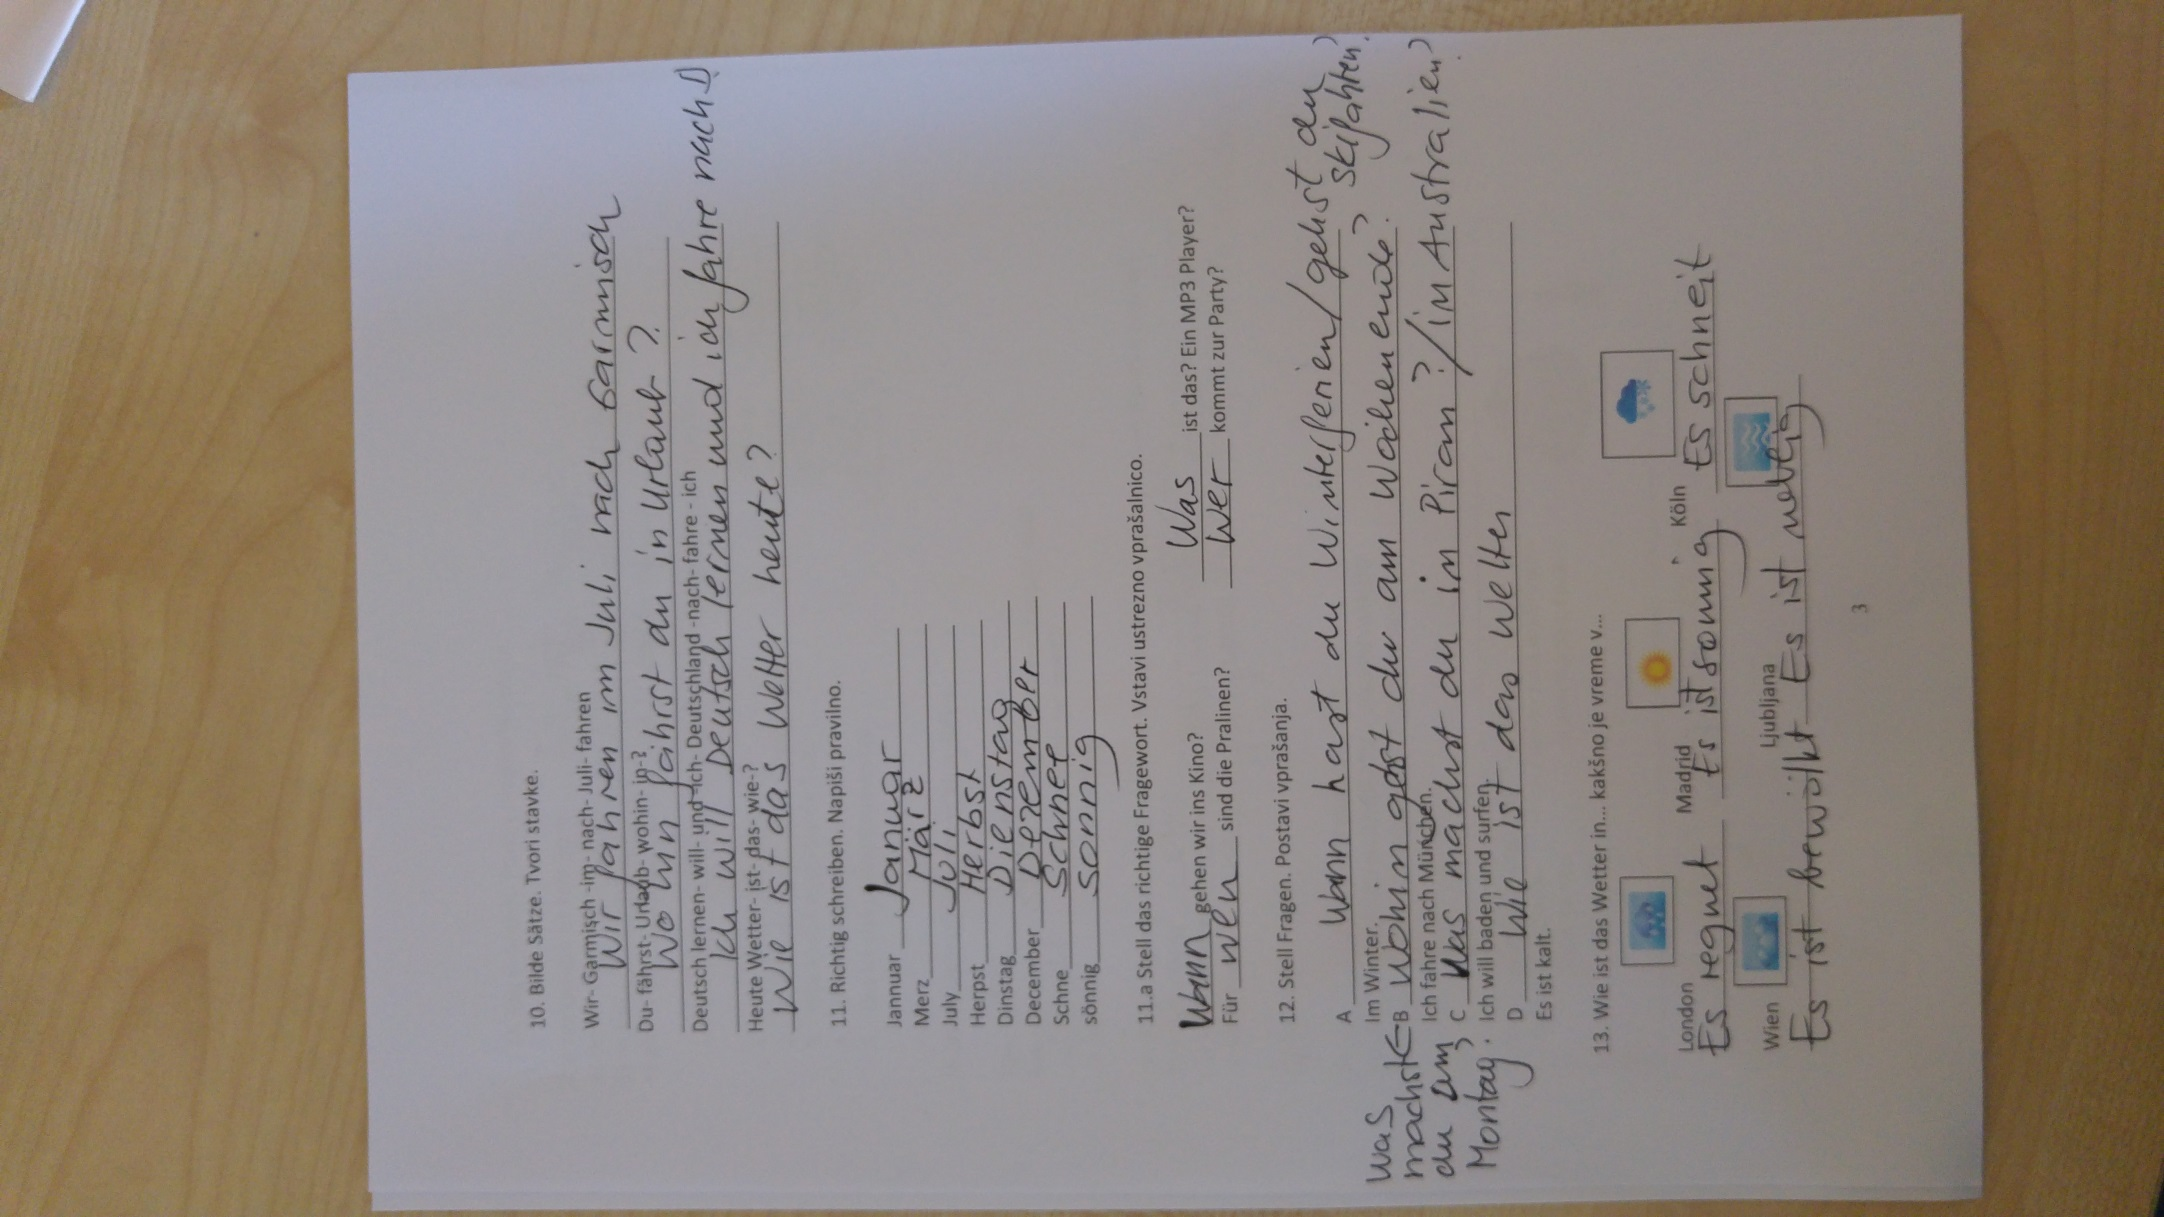 10. Bilde Sätze. Tvori stavke.
Wir- Garmisch -im- nach- Juli- fahren
Wir fahren im Juli nach Garmisch
Du- fährst- Urlaub- wohin- in-?
Wohin fährst du in Urlaub?
Deutsch lernen- will- und -ich- Deutschland -nach- fahre - ich
Ich will Deutsch lernen und ich fahre nach D
Heute Wetter- ist- das- wie-?
Wie ist das Wetter heute?
11. Richtig schreiben. Napiši pravilno.
Jannuar Januar
Merz März
July Juli
Herpst Herbst
Dinstag Dienstag
December Dezember
Schne Schnee
sönnig sonnig
11.a Stell das richtige Fragewort. Vstavi ustrezno vprašalnico.
Wann gehen wir ins Kino? Was ist das? Ein MP3 Player?
Für wen sind die Pralinen? Wer kommt zur Party?
12. Stell Fragen. Postavi vprašanja.
A Wann hast du Winterferien/gehst du skifahren?
Im Winter.
B Wohin gehst du am Wochenende?
Was machst du am Montag?
Ich fahre nach München.
C Was machst du in Piran?/in Australien?
Ich will baden und surfen.
D Wie ist das Wetter
Es ist kalt.
13. Wie ist das Wetter in... kakšno je vreme v...
London Madrid Köln
Es regnet Es ist sonnig Es schneit
Wien Ljubljana
Es ist bewölkt Es ist neblig
3